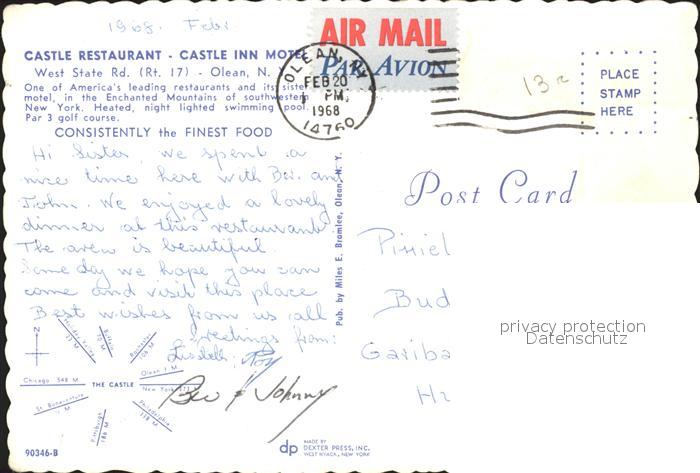 1968. Febr.
CASTLE RESTAURANT - CASTLE INN MOTEL
West State Rd. (Rt. 17) - Olean, N.
One of America's leading restaurants and its sister
motel, in the Enchanted Mountains of southwestern
New York. Heated, night lighted swimming pool.
Par 3 golf course.
CONSISTENTLY the FINEST FOOD
AIR MAIL
PAR AVION
OLEAN, N.Y.
FEB 20
PM
1968
14760
PLACE
STAMP
HERE
Post Card
Hi Sister, we spent a
nice time here with Bev. and
John. We enjoyed a lovely
dinner at this restaurant
The area is beautiful.
Some day we hope you can
come and visit this place
Best wishes from us all
Greetings from:
Bev & Johnny
Pub. by Miles E. Bromlee, Olean, N. Y.
Bud
Gariba
privacy protection
Datenschutz
N
Holiday Valley
Buffalo
Rochester
Olean
Chicago 548 M
THE CASTLE
New York
St. Bonaventure
Philadelphia
Pittsburgh
90346-B
dp
MADE BY
DEXTER PRESS, INC.
WEST NYACK, NEW YORK